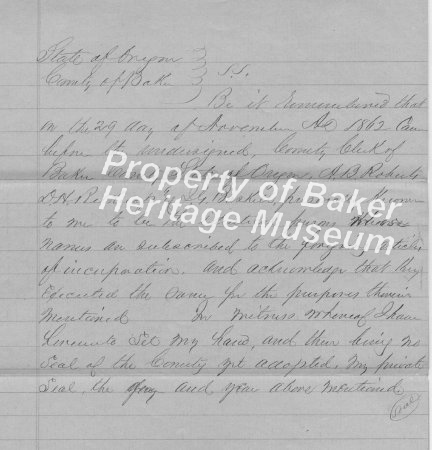 State of Oregon
County of Baker } S.S.
Be it remembered that
on the 29 day of November AD 1862 Came
before the undersigned, County Clerk of
Baker Oregon, A.B. Roberts
to me to be the whose
names are subscribed to the
of incorporation. and acknowledge that they
executed the same for the purposes therein
mentioned In Witness Whereof I have
hereunto Set my hand, and their being no
Seal of the County yet adopted, my private
Seal, the day and year above mentioned
Seal
Property of Baker
Heritage Museum